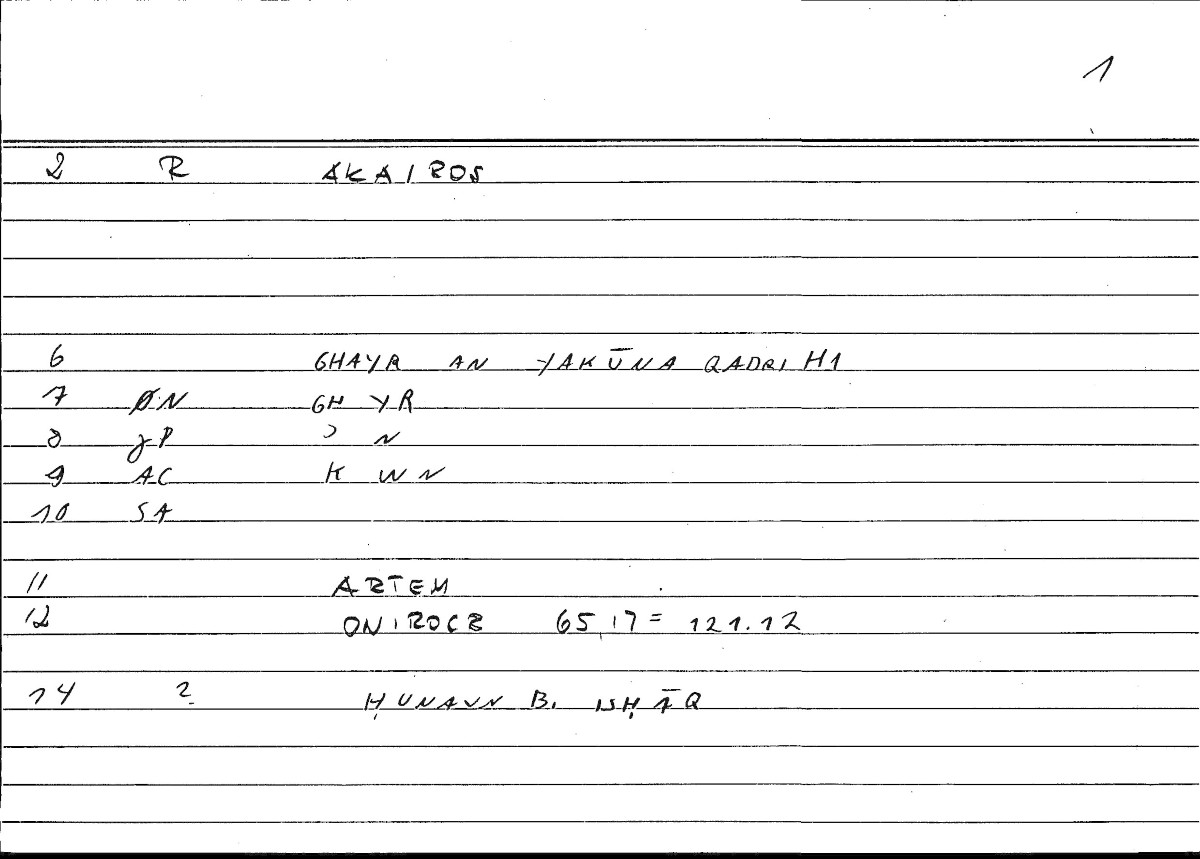 1
2 R AKAIROS
6 GHAYR AN YAKŪNA QADRI H1
7 ØN GH YR
8 gP ʾ N
9 AC K WN
10 SA
11 ARTEM
12 ONIROCR 65,17 = 121.12
14 2 ḤUNAYN B. ISḤĀQ